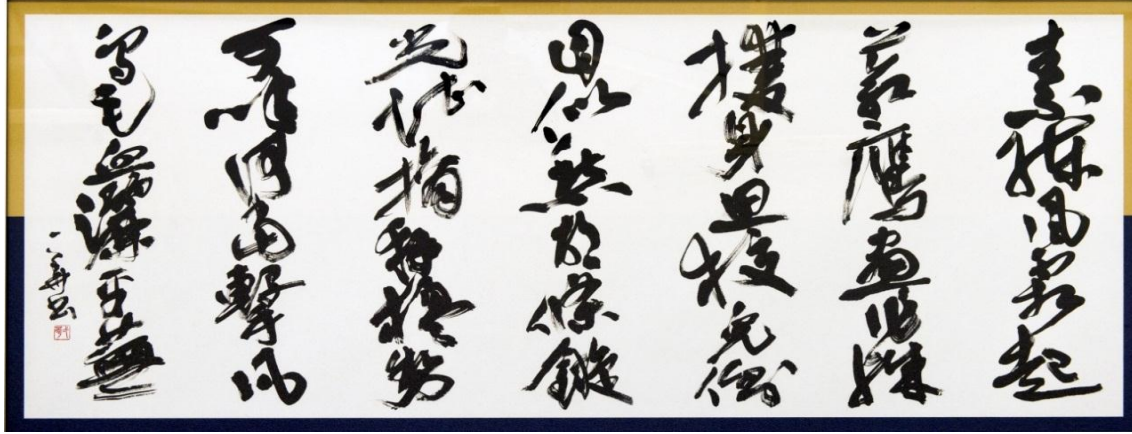 素練風霜起
蒼鷹畫作殊
㩳身思狡兔側
目似愁胡絛鏇
光堪摘軒楹勢
可呼何當擊凡
鳥毛血灑平蕪
書